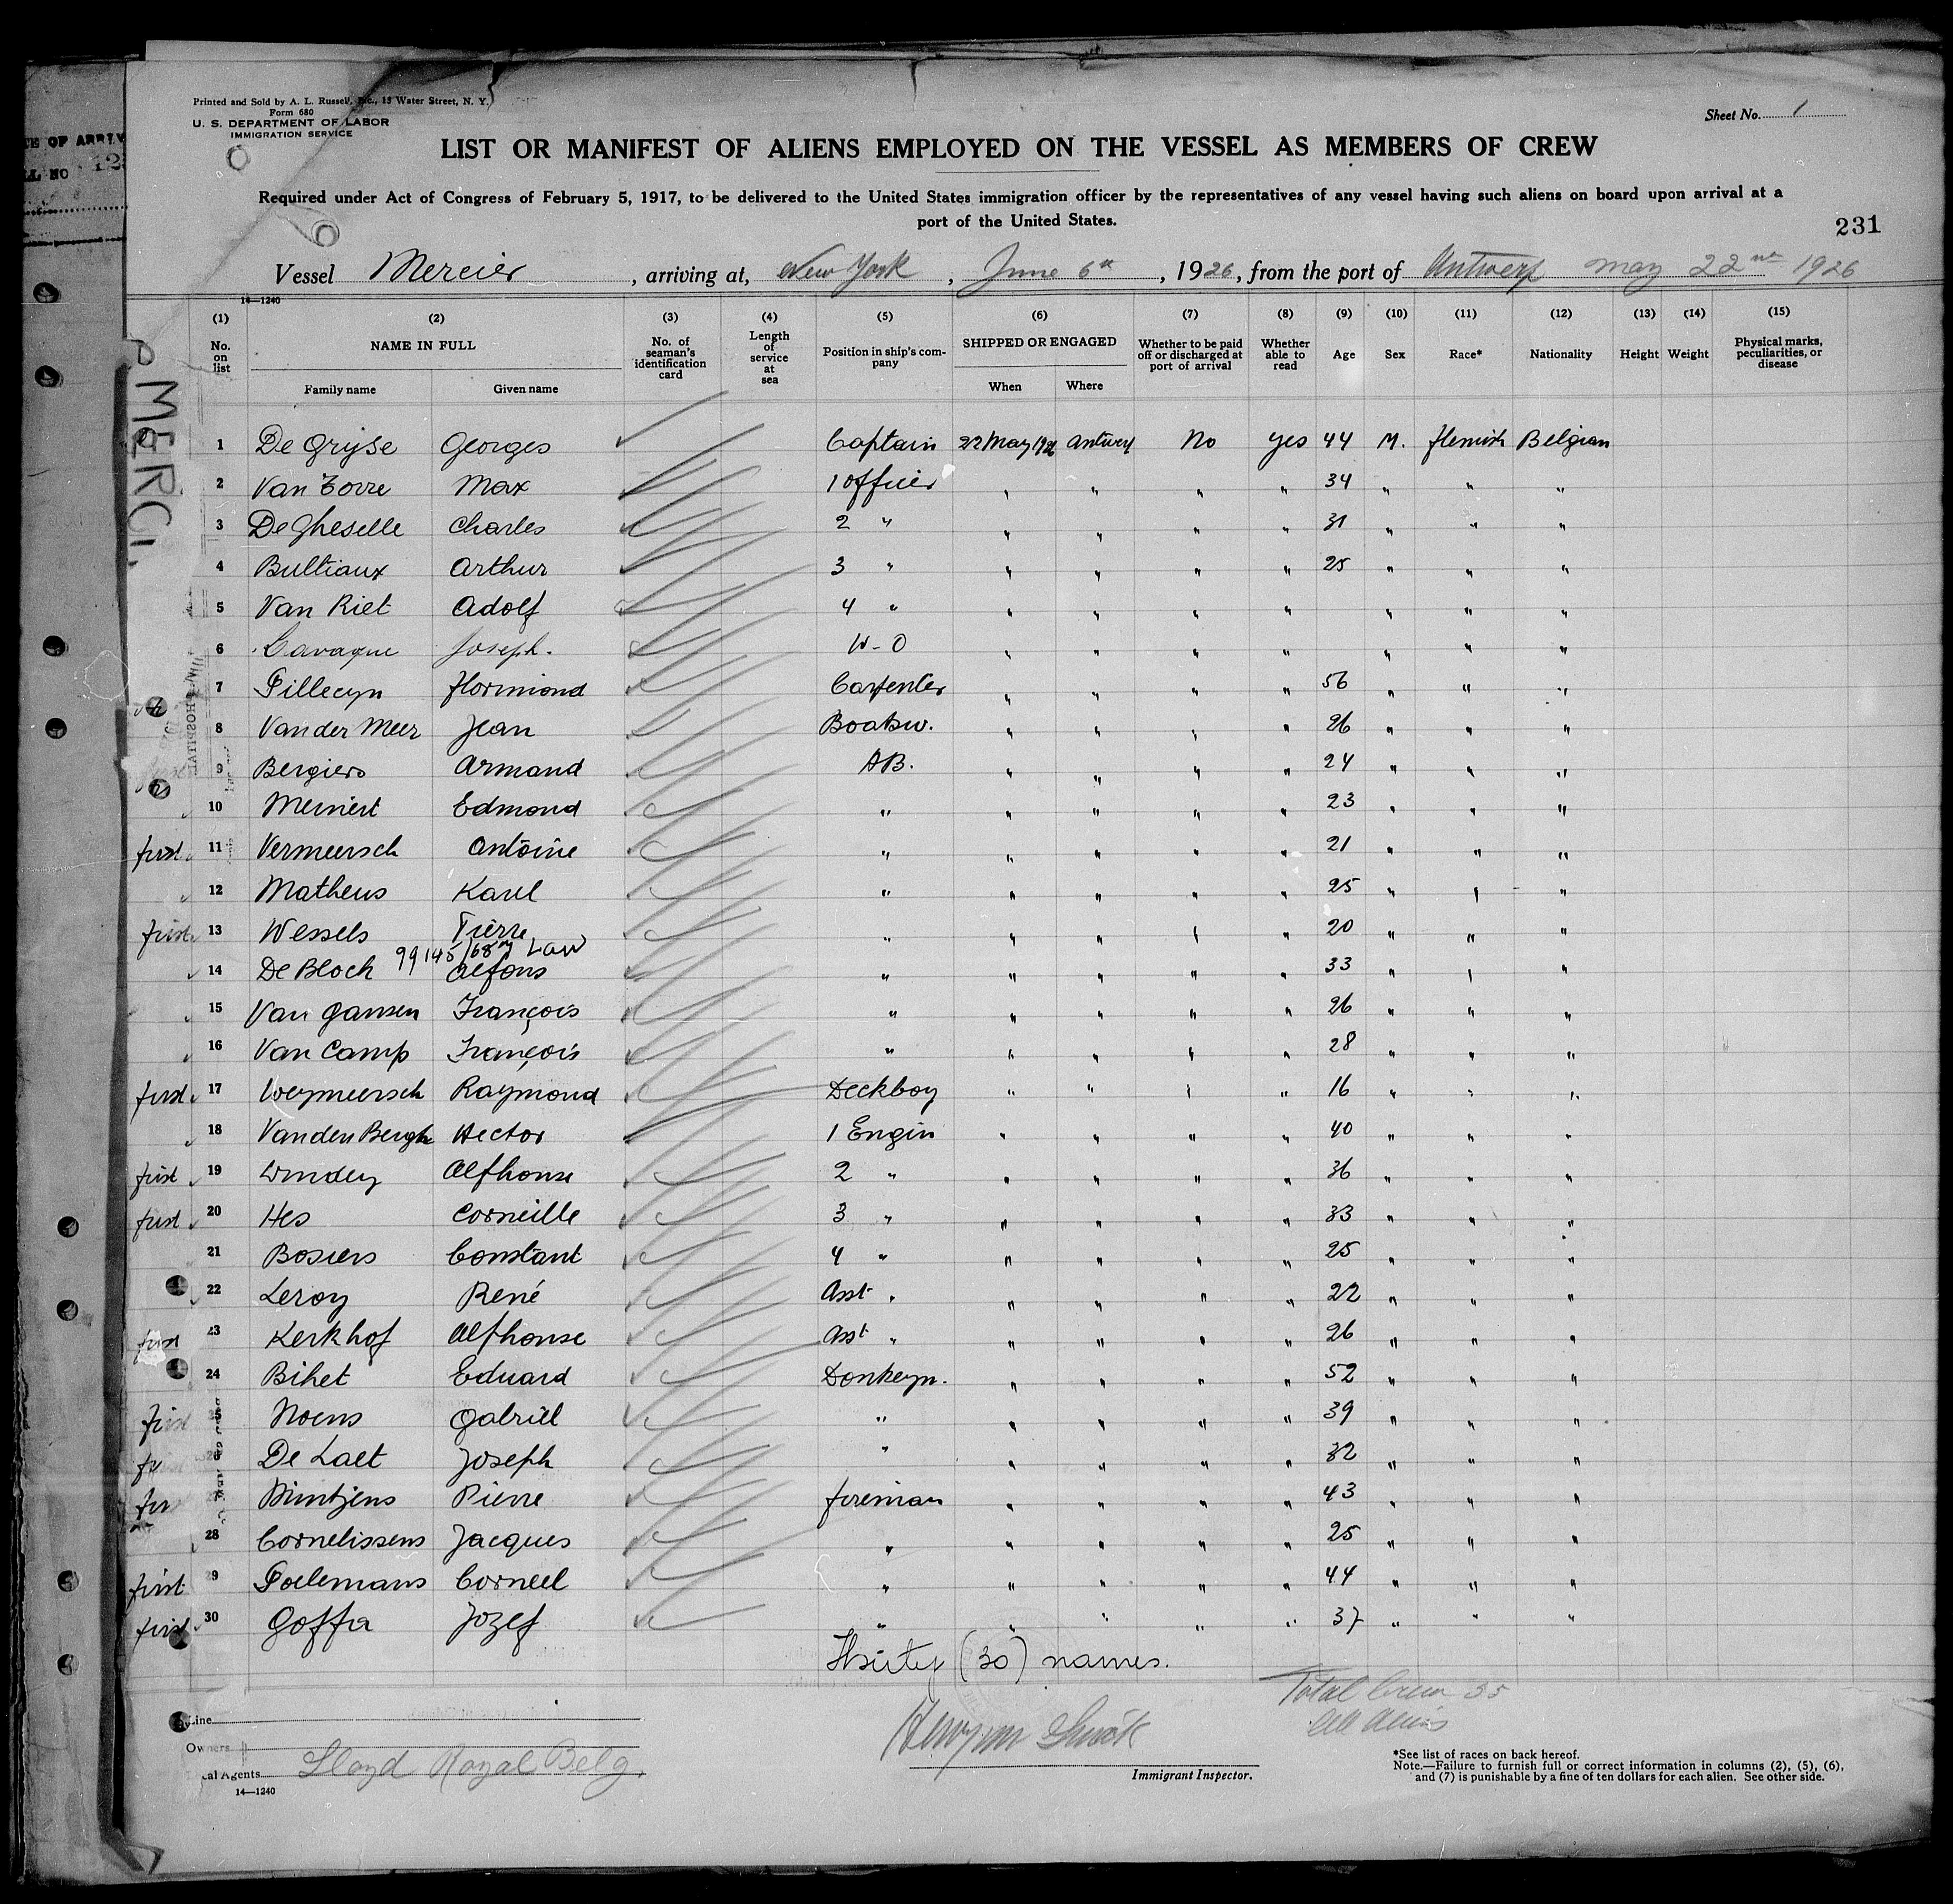 Printed and Sold by A. L. Russell, Inc., 13 Water Street, N. Y.
Form 680
U. S. DEPARTMENT OF LABOR
IMMIGRATION SERVICE
Sheet No. 1
LIST OR MANIFEST OF ALIENS EMPLOYED ON THE VESSEL AS MEMBERS OF CREW
Required under Act of Congress of February 5, 1917, to be delivered to the United States immigration officer by the representatives of any vessel having such aliens on board upon arrival at a
port of the United States.
231
Vessel Mercier, arriving at, New York, June 6th, 1926, from the port of Antwerp may 22nd 1926
14—1240
(1) No. on list (2) NAME IN FULL Family name Given name (3) No. of seaman's identification card (4) Length of service at sea (5) Position in ship's company (6) SHIPPED OR ENGAGED When Where (7) Whether to be paid off or discharged at port of arrival (8) Whether able to read (9) Age (10) Sex (11) Race* (12) Nationality (13) Height (14) Weight (15) Physical marks, peculiarities, or disease
1 De Gryse Georges Captain 22 May 1926 Antwerp No yes 44 M. flemish Belgian
2 Van Torre Max 1 Officer " " " " 34 " " "
3 De Gheselle Charles 2 " " " " " 31 " " "
4 Bultiaux Arthur 3 " " " " " 25 " " "
5 Van Riet Adolf 4 " " " " " " " "
6 Joseph. W-O " " " " " " "
7 Pillecyn Florimond Carpenter " " " " 56 " " "
8 Van der Meer Jean Boatsw. " " " " 26 " " "
9 Bergiers Armand AB. " " " " 24 " " "
10 Meinert Edmond " " " " " 23 " " "
first 11 Vermeersch Antoine " " " " " 21 " " "
12 Matheus Karel " " " " " 25 " " "
first 13 Wessels Pierre " " " " " 20 " " "
14 De Block Alfons " " " " " 33 " " "
15 Van Gansen François " " " " " 26 " " "
16 Van Camp François " " " " " 28 " " "
first 17 Weymeersch Raymond Deckboy " " " " 16 " " "
18 Vanden Berghe Hector 1 Engin " " " " 40 " " "
first 19 Windey Alfhonse 2 " " " " " 36 " " "
first 20 Hes Corneille 3 " " " " " 33 " " "
21 Bosiers Constant 4 " " " " " 25 " " "
22 Leroy René Asst " " " " " 22 " " "
first 23 Kerkhof Alfhonse Asst " " " " " 26 " " "
24 Bihet Eduard Donkeyn. " " " " 52 " " "
first 25 Noens Gabriel " " " " " 39 " " "
26 De Laet Joseph " " " " " 32 " " "
27 Pierre fireman " " " " 43 " " "
28 Cornelissens Jacques " " " " " 25 " " "
first 29 Poelemans Corneel " " " " " 44 " " "
first 30 Goffa Jozef " " " " " 37 " " "
Thirty (30) names.
Total Crew 35
Line
Owners
Local Agents Lloyd Royal Belg.
Immigrant Inspector.
14—1240
*See list of races on back hereof.
Note.—Failure to furnish full or correct information in columns (2), (5), (6),
and (7) is punishable by a fine of ten dollars for each alien. See other side.